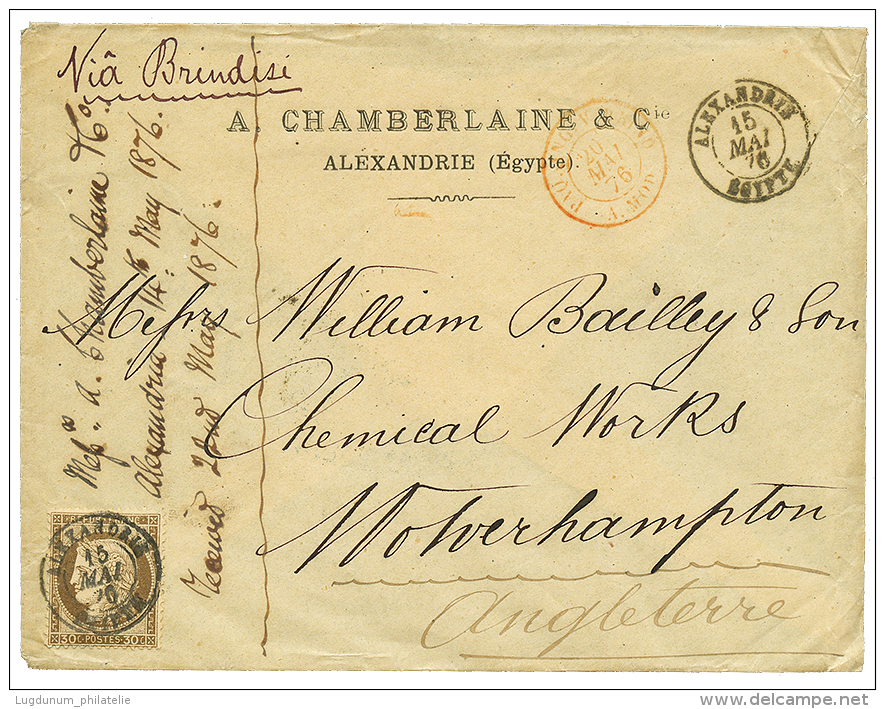 Viâ Brindisi
A. CHAMBERLAINE & Cie
ALEXANDRIE (Égypte).
ALEXANDRIE
15
MAI
76
EGIPTE
20
MAI
76
PAQ. A. MOD
Messrs William Bailley & Son
Chemical Works
Wolverhampton
Angleterre
Messrs. A. Chamberlaine & Co.
Alexandria 14th May 1876.
Received 22nd May 1876.
ALEXANDRIE
15
MAI
76
30 C. POSTES 30 C.
Lugdunum_philatelie
www.delcampe.net